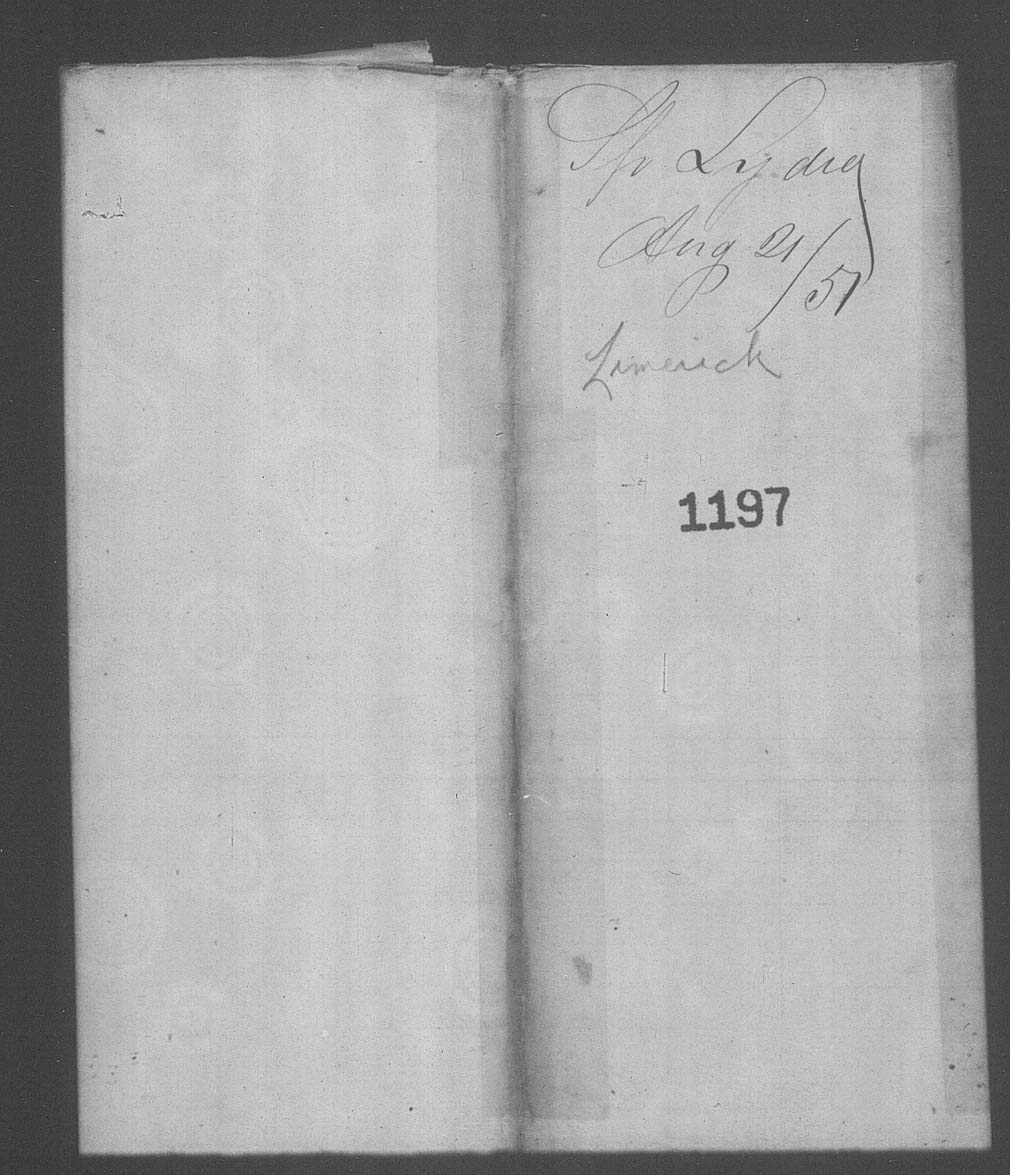 Shp Lydia
Aug 21/51
Limerick
1197